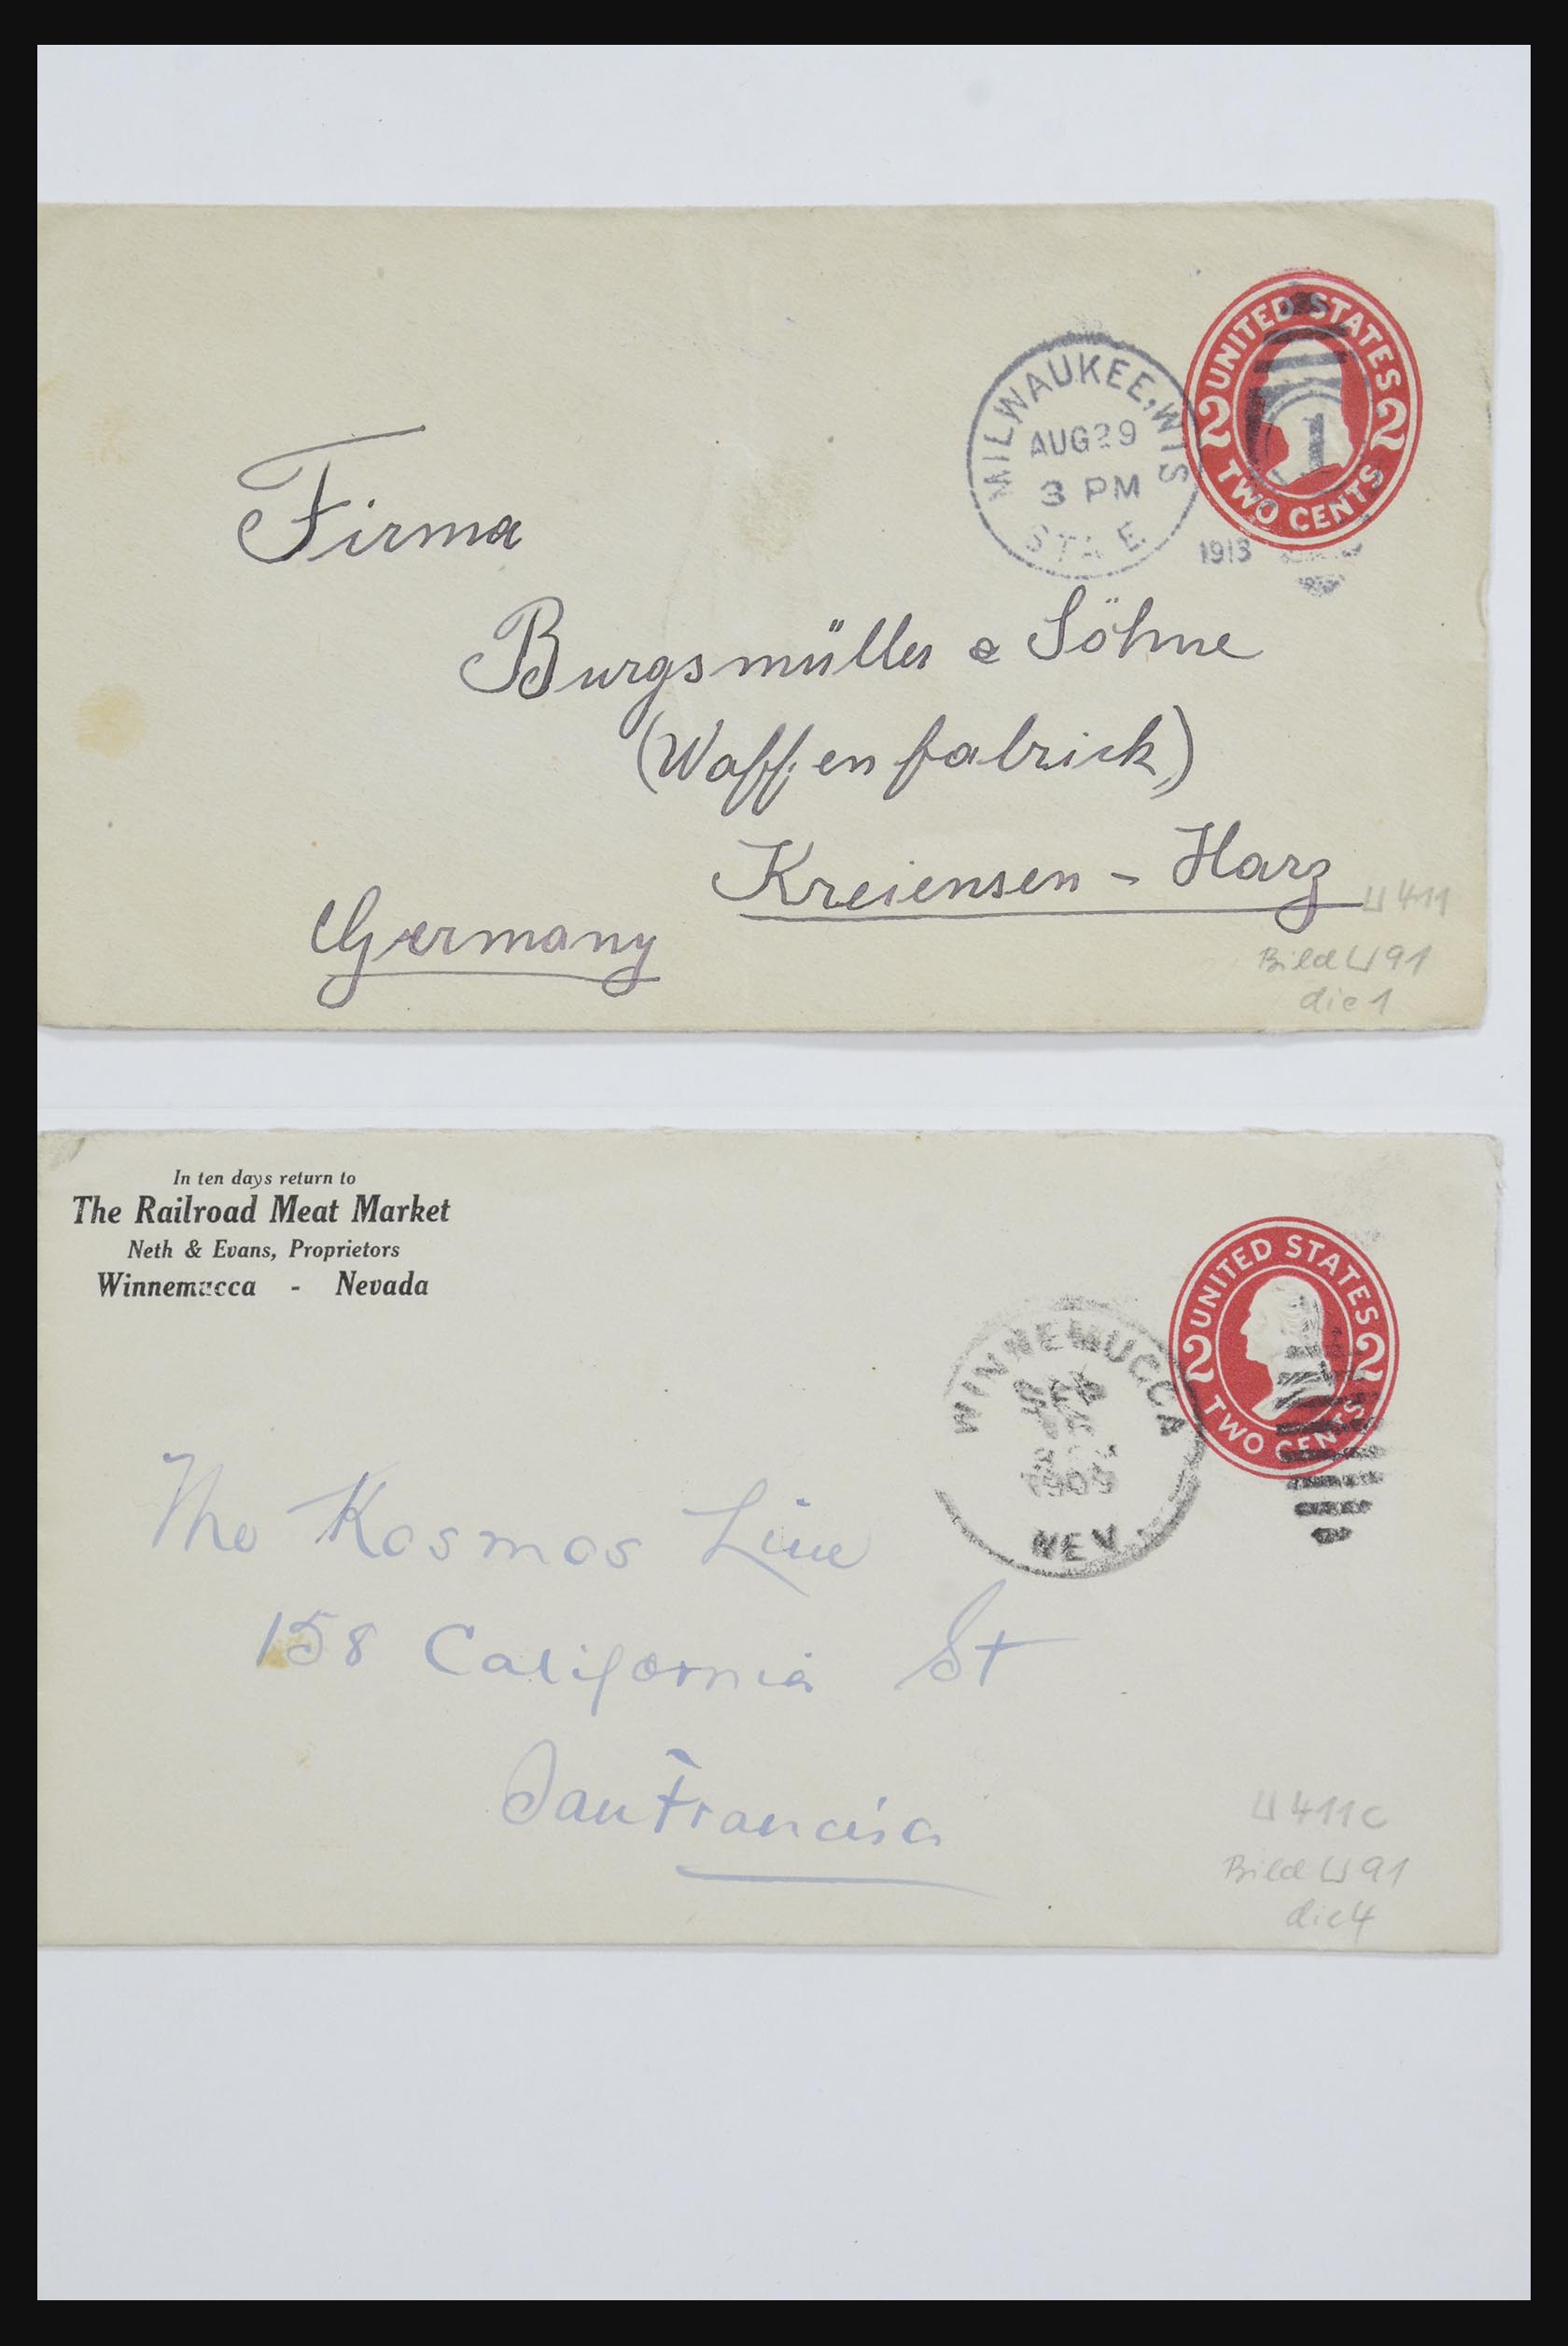 UNITED STATES
2 2
TWO CENTS
MILWAUKEE, WIS
AUG 29
3 PM
STA E
1913
1
Firma
Burgsmüller & Söhne
(Waffenfabrick)
Kreiensen - Harz
Germany
U 411
Bild U 91
die 1
In ten days return to
The Railroad Meat Market
Neth & Evans, Proprietors
Winnemucca - Nevada
UNITED STATES
2 2
TWO CENTS
WINNEMUCCA
1909
NEV.
The Kosmos Line
158 California St
San Francisco
U 411c
Bild U 91
die 4